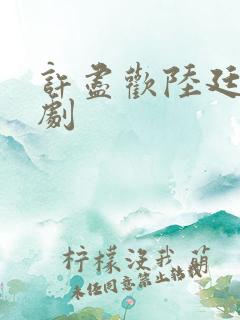 許盡歡陸廷
劇
柠檬没我萌
未经同意禁止转载